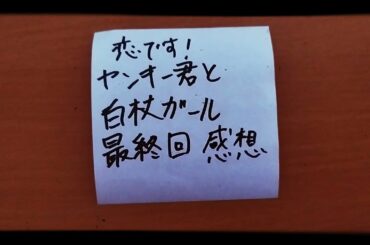 恋です!
ヤンキー君と
白杖ガール
最終回 感想